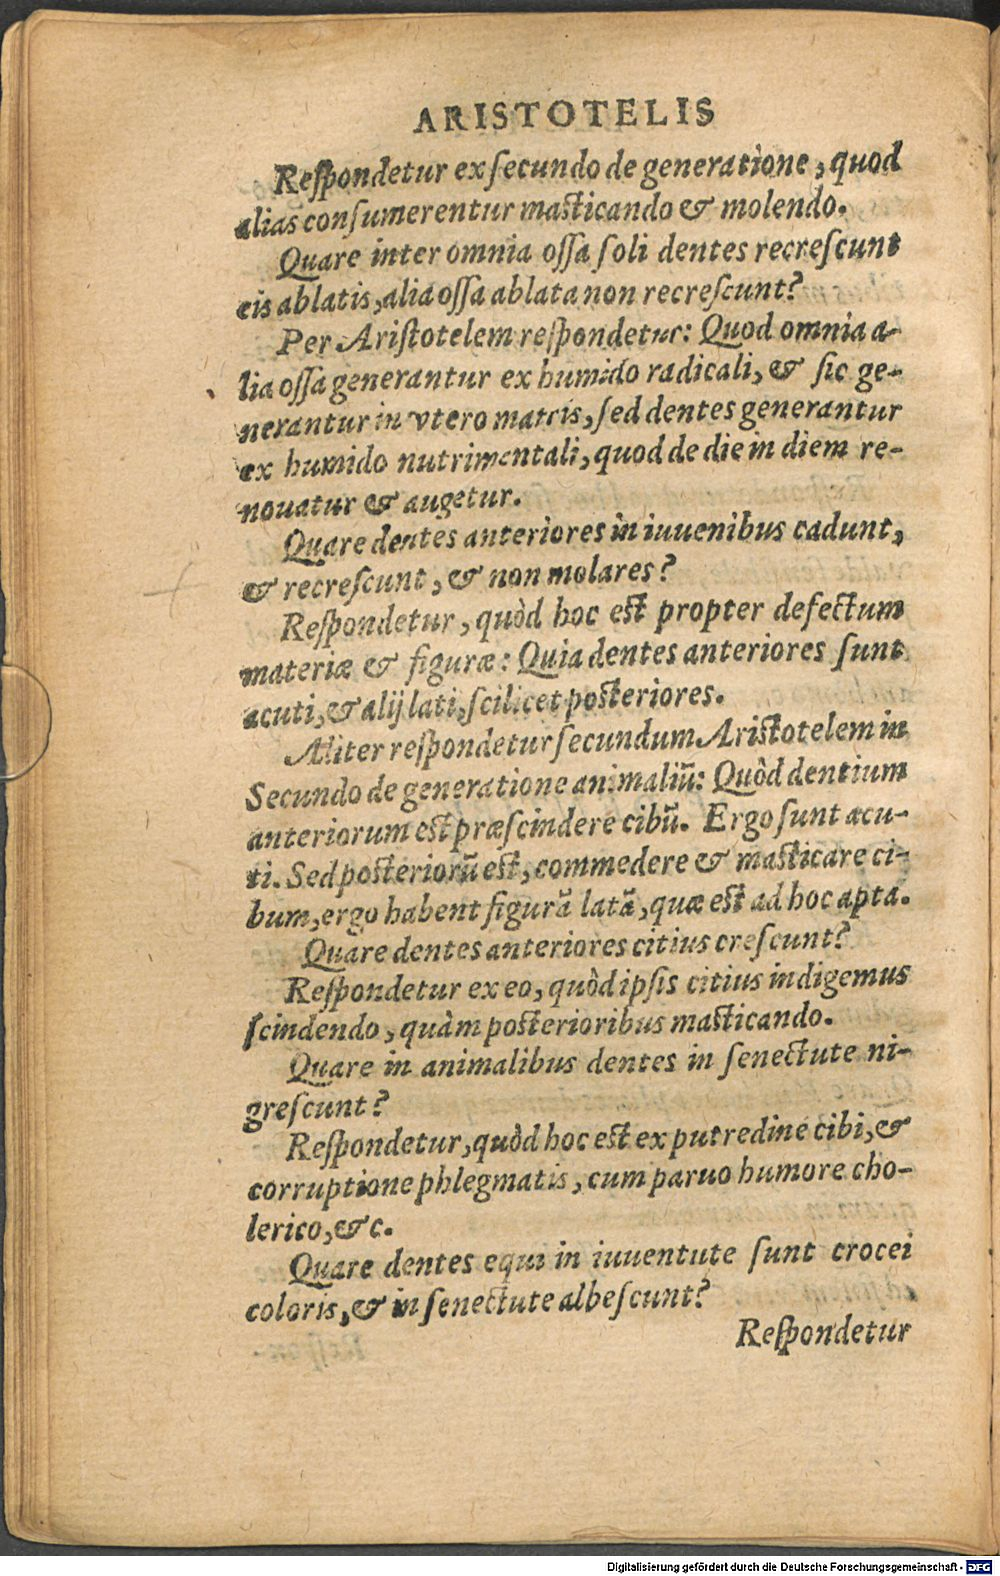 ARISTOTELIS
Reſpondetur ex ſecundo de generatione, quod
alias conſumerentur maſticando & molendo.
Quare inter omnia oſſa ſoli dentes recreſcunt
eis ablatis, alia oſſa ablata non recreſcunt?
Per Ariſtotelem reſpondetur: Quod omnia a-
lia oſſa generantur ex humido radicali, & ſic ge-
nerantur in vtero matris, ſed dentes generantur
ex humido nutrimentali, quod de die in diem re-
nouatur & augetur.
Quare dentes anteriores in iuuenibus cadunt,
& recreſcunt, & non molares?
Reſpondetur, quòd hoc eſt propter defectum
materiæ & figuræ: Quia dentes anteriores ſunt
acuti, & alij lati, ſcilicet poſteriores.
Aliter reſpondetur ſecundum Ariſtotelem in
Secundo de generatione animaliũ: Quòd dentium
anteriorum eſt præſcindere cibũ. Ergo ſunt acu-
ti. Sed poſteriorũ eſt, commedere & maſticare ci-
bum, ergo habent figurã latã, quæ eſt ad hoc apta.
Quare dentes anteriores citius creſcunt?
Reſpondetur ex eo, quòd ipſis citius indigemus
ſcindendo, quàm poſterioribus maſticando.
Quare in animalibus dentes in ſenectute ni-
greſcunt?
Reſpondetur, quòd hoc eſt ex putredine cibi, &
corruptione phlegmatis, cum paruo humore cho-
lerico, &c.
Quare dentes equi in iuuentute ſunt crocei
coloris, & in ſenectute albeſcunt?
Reſpondetur
Digitalisierung gefördert durch die Deutsche Forschungsgemeinschaft - DFG